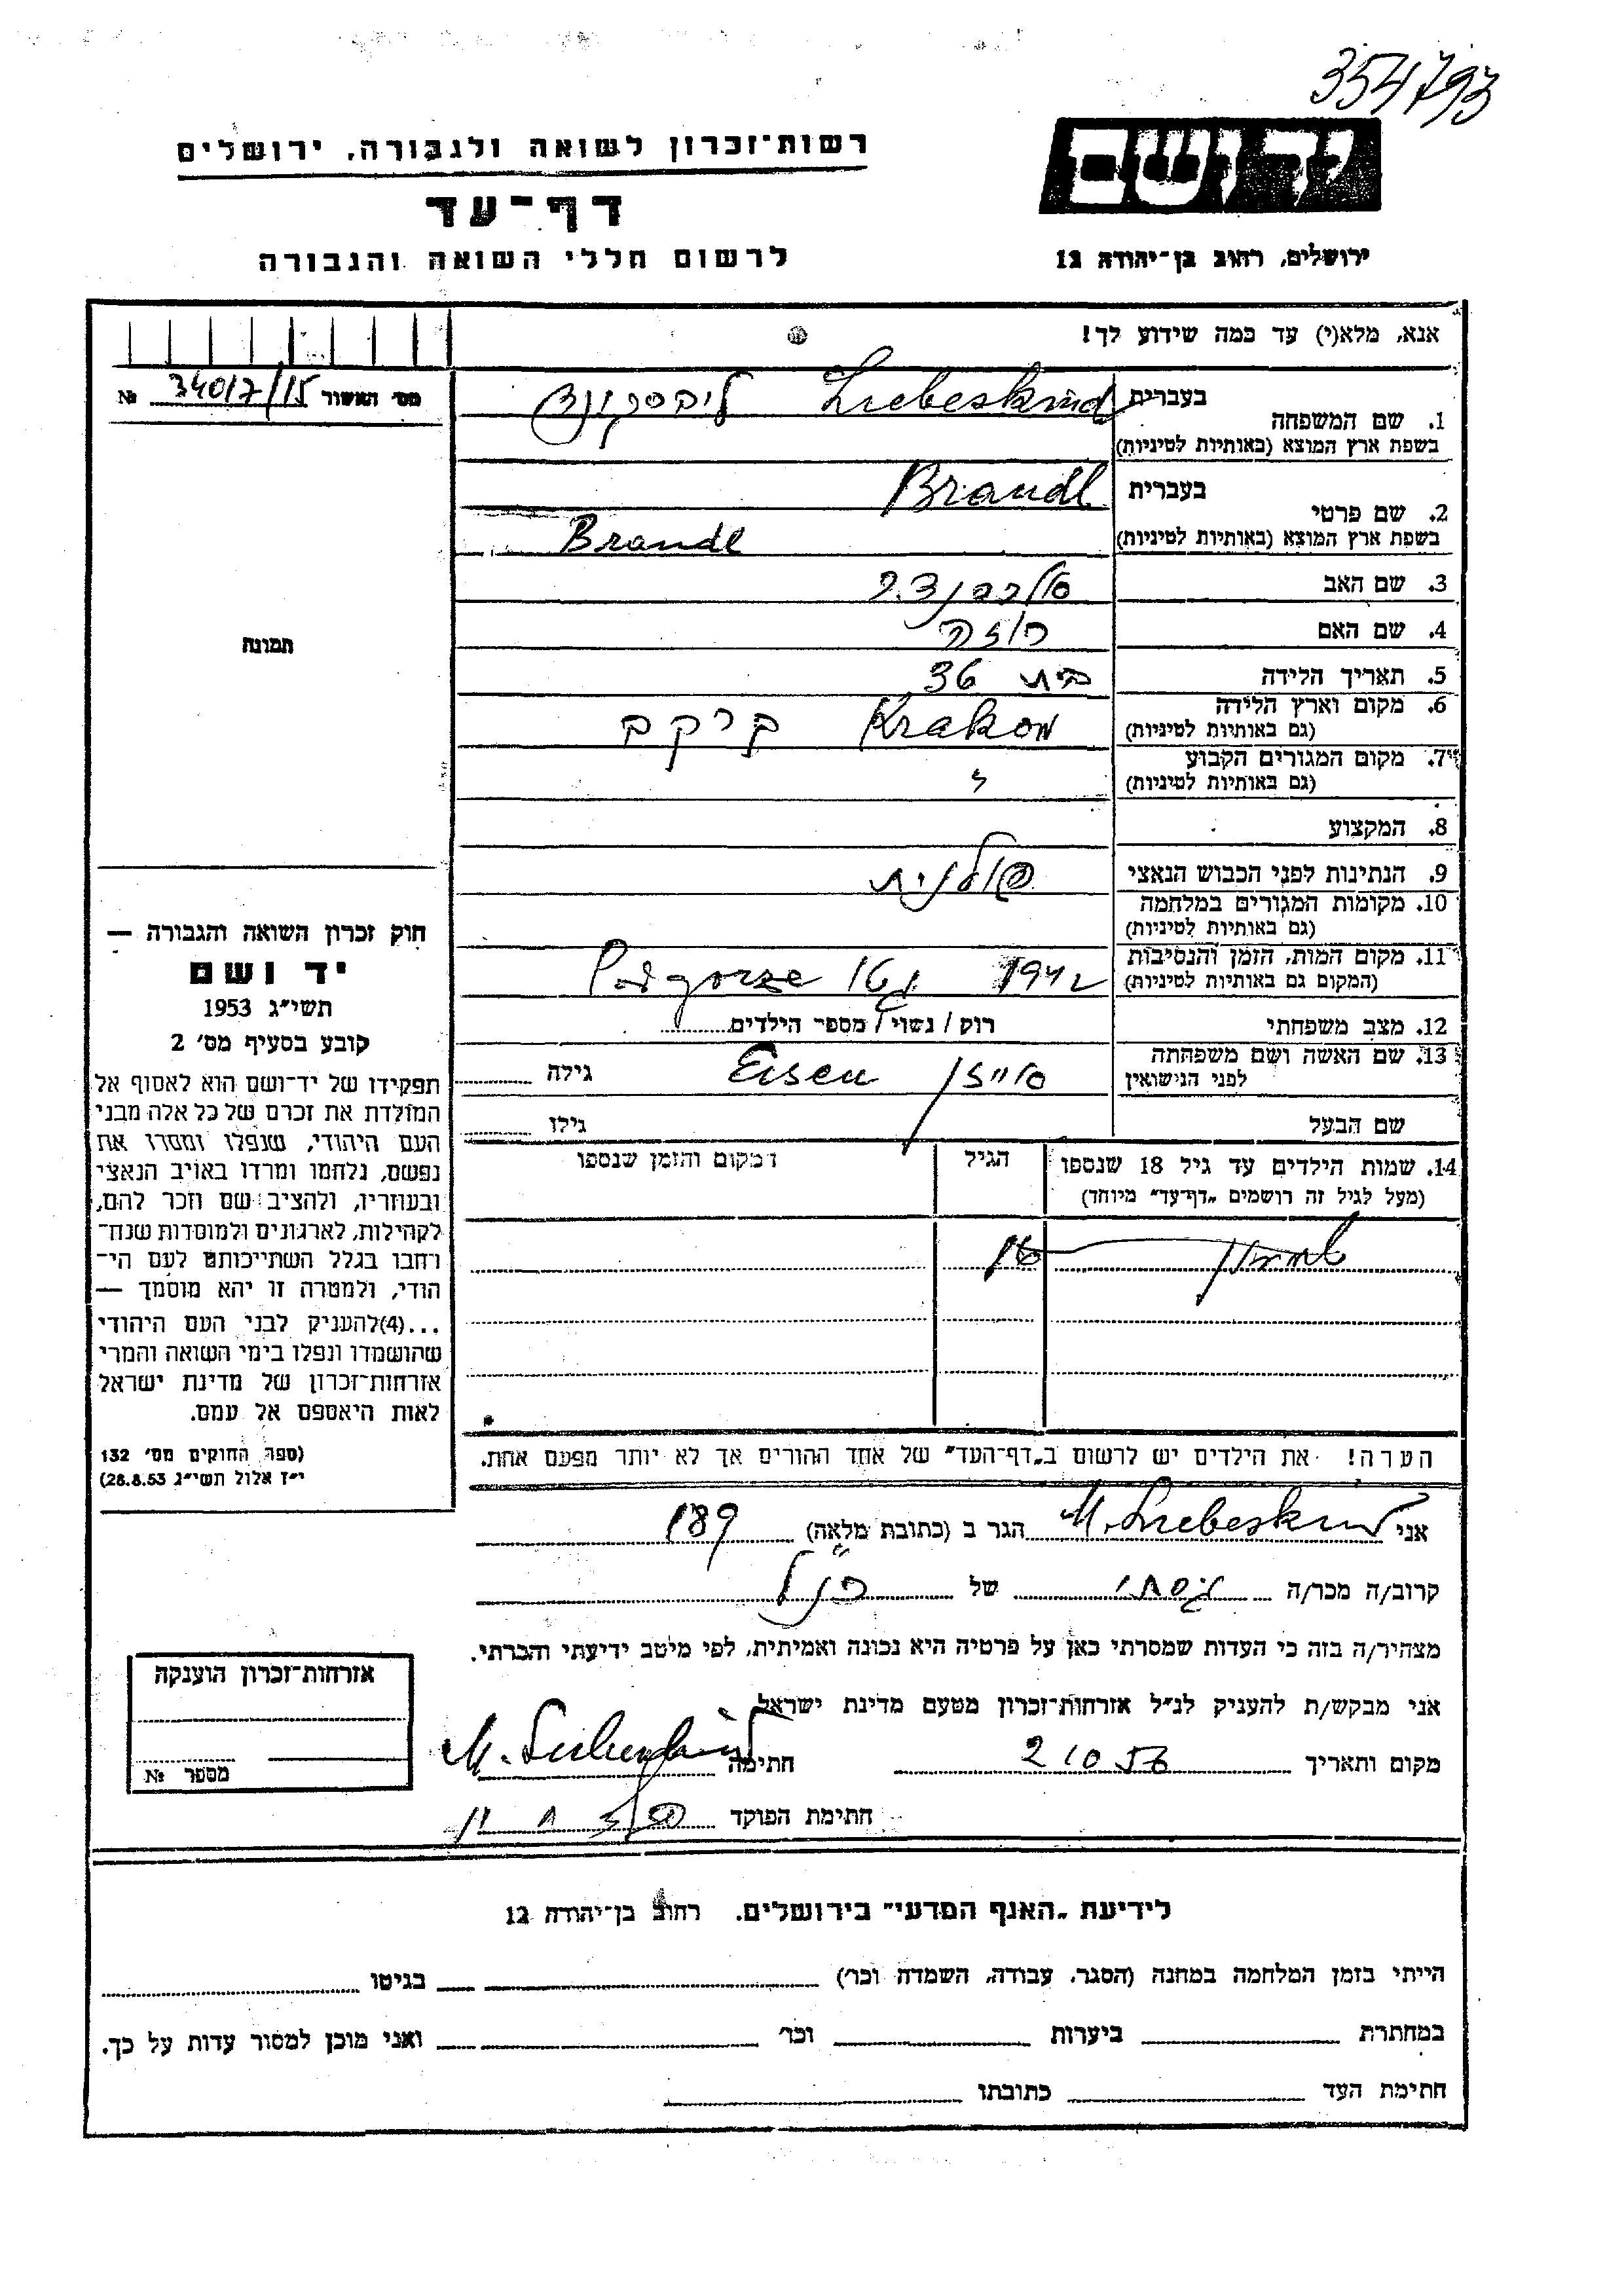 354793
רשות־זכרון לשואה ולגבורה, ירושלים
יד ושם
דף־עד
לרשום חללי השואה והגבורה
ירושלים, רחוב בן־יהודה 12
אנא, מלא(י) עד כמה שידוע לך!
מס' האשור № 34017/15
1. שם המשפחה
בעברית Liebeskind ליבסקונד
בשפת ארץ המוצא (באותיות לטיניות)
בעברית Brandl
2. שם פרטי
בשפת ארץ המוצא (באותיות לטיניות) Brandl
3. שם האב
4. שם האם רוזה
תמונה
5. תאריך הלידה בת 36
6. מקום וארץ הלידה
(גם באותיות לטיניות) Krakow
7. מקום המגורים הקבוע
(גם באותיות לטיניות)
8. המקצוע
9. הנתינות לפני הכבוש הנאצי פולנית
10. מקומות המגורים במלחמה
(גם באותיות לטיניות)
11. מקום המות, הזמן והנסיבות
(המקום גם באותיות לטיניות) 1942 גטו Podgorze
12. מצב משפחתי רוק / נשוי / מספר הילדים
13. שם האשה ושם משפחתה
לפני הנישואין אייזן Eisen גילה
שם הבעל גילו
14. שמות הילדים עד גיל 18 שנספו
(מעל לגיל זה רושמים „דף־עד" מיוחד)
הגיל
המקום והזמן שנספו
חוק זכרון השואה והגבורה —
יד ושם
תשי"ג 1953
קובע בסעיף מס' 2
תפקידו של יד־ושם הוא לאסוף אל
המולדת את זכרם של כל אלה מבני
העם היהודי, שנפלו ומסרו את
נפשם, נלחמו ומרדו באויב הנאצי
ובעוזריו, ולהציב שם וזכר להם,
לקהילות, לארגונים ולמוסדות שנח־
רחבו בגלל השתייכותם לעם הי־
הודי, ולמטרה זו יהא מוסמך —
...(4)להעניק לבני העם היהודי
שהושמדו ונפלו בימי השואה והמרי
אזרחות־זכרון של מדינת ישראל
לאות היאספם אל עמם.
(ספר החוקים מס' 132
י"ז אלול תשי"ג 28.8.53)
הערה! את הילדים יש לרשום ב„דף־העד" של אחד ההורים אך לא יותר מפעם אחת.
אני M. Liebeskind הגר ב (כתובת מלאה) 189
קרוב/ה מכר/ה גיסתי של
מצהיר/ה בזה כי העדות שמסרתי כאן על פרטיה היא נכונה ואמיתית, לפי מיטב ידיעתי והכרתי.
אני מבקש/ת להעניק לנ"ל אזרחות־זכרון מטעם מדינת ישראל
מקום ותאריך 2 10 56 חתימה M. Liebeskind
חתימת הפוקד
אזרחות־זכרון הוענקה
מספר №
לידיעת „האגף המדעי" בירושלים. רחוב בן־יהודה 12
הייתי בזמן המלחמה במחנה (הסגר, עבודה, השמדה וכר') בגיטו
במחתרת ביערות וכר' ואני מוכן למסור עדות על כך.
חתימת העד כתובתו